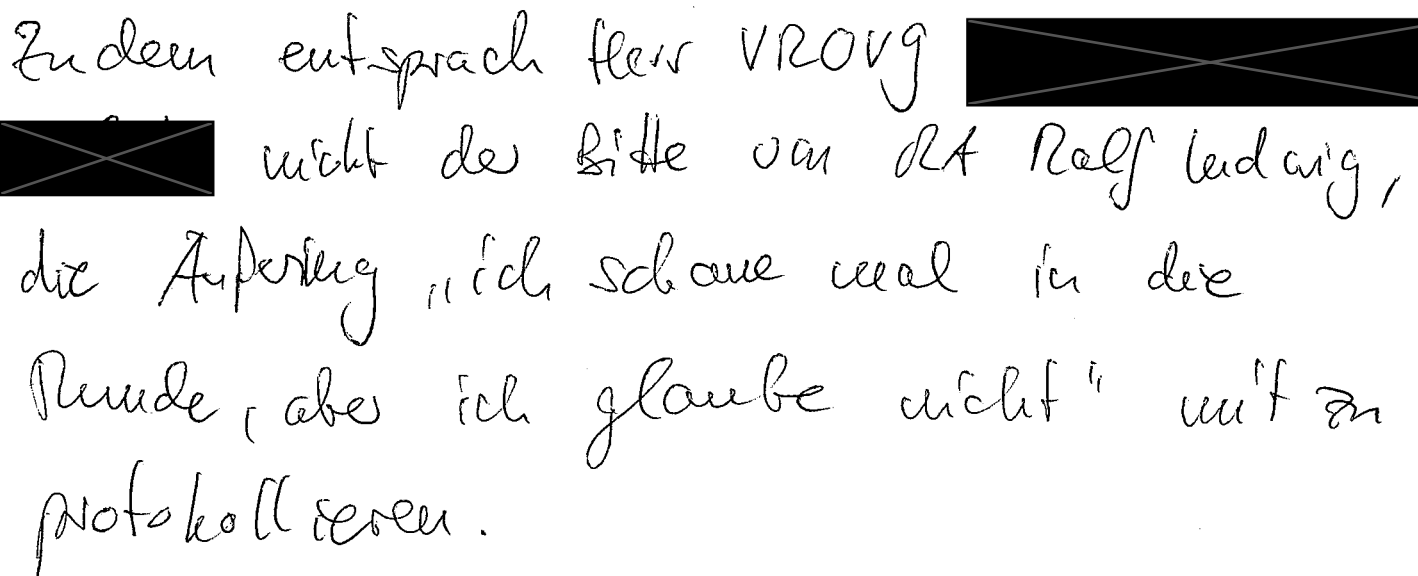 Zudem entsprach Herr VROVG
nicht der Bitte von RA Ralf Ludwig,
die Äußerung „ich schaue mal in die
Runde, aber ich glaube nicht" mit zu
protokollieren.